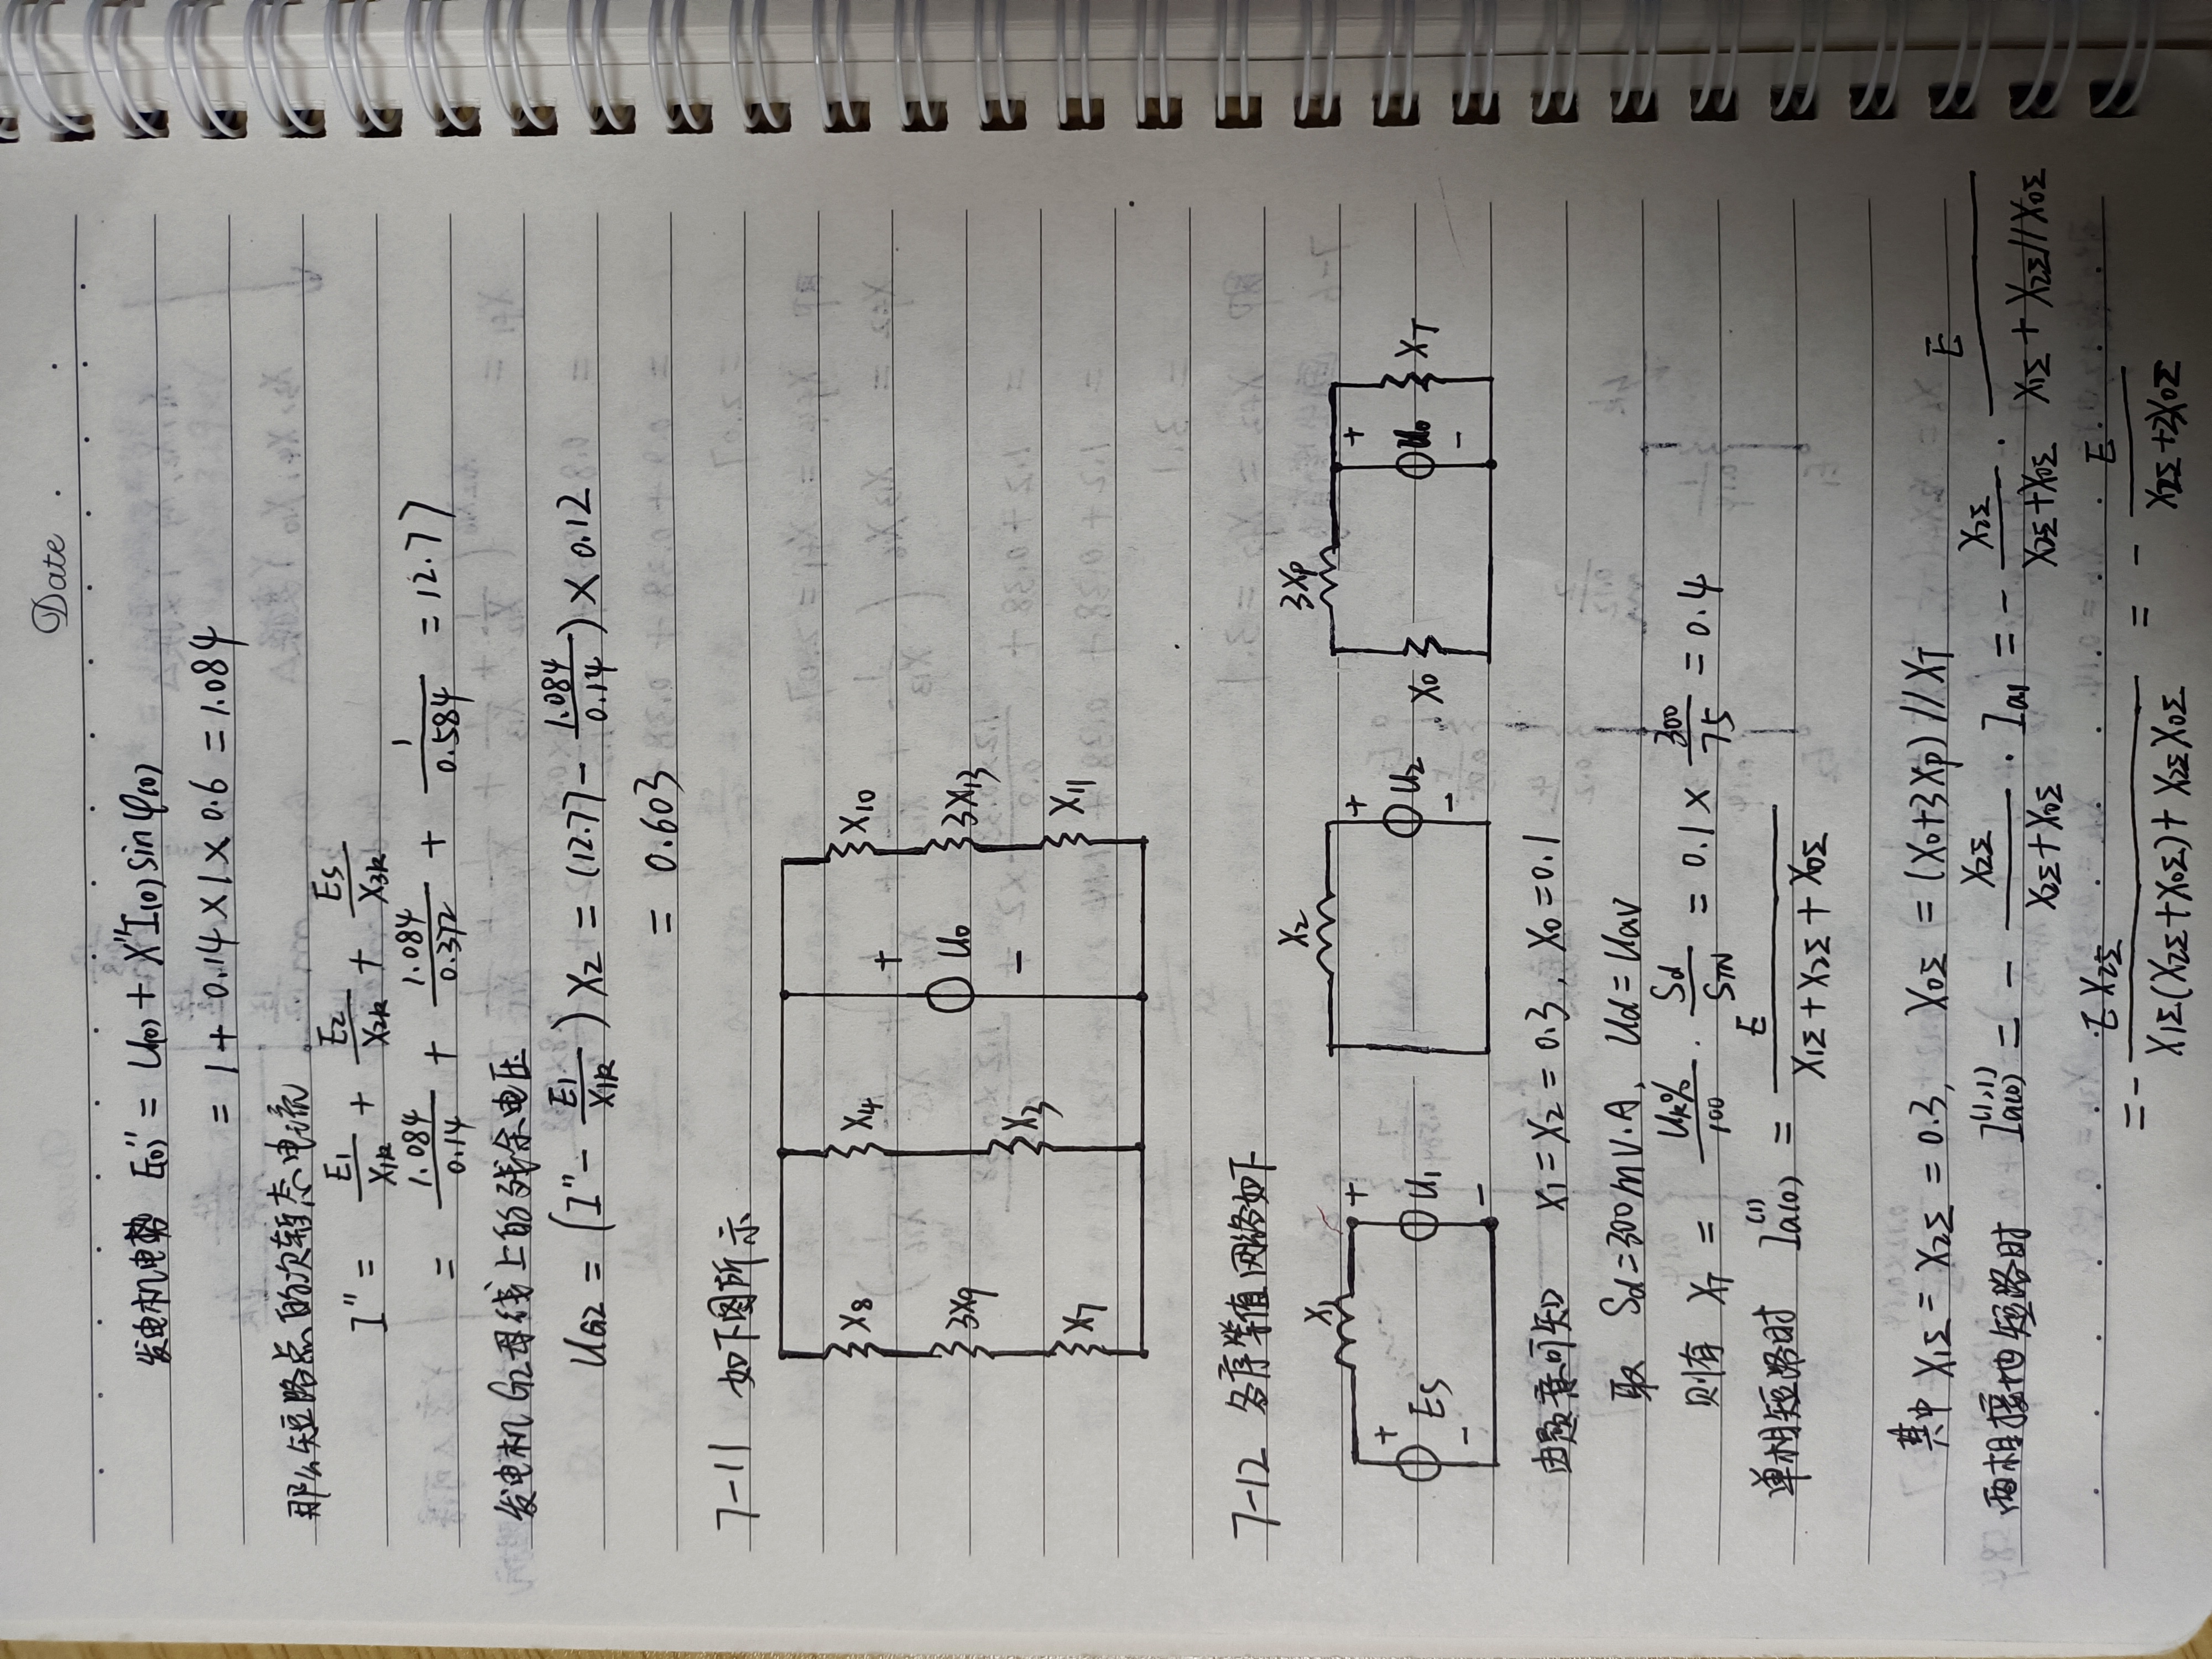 Date
发电机电势 E(0)'' = U(0) + X''I(0) sinφ(0)
= 1 + 0.14 × 1 × 0.6 = 1.084
那么短路点的次暂态电流
I'' = E1/X1k + E2/X2k + Es/X3k
= 1.084/0.14 + 1.084/0.372 + 1/0.584 = 12.77
发电机 G2母线上的残余电压
UG2 = (I'' - E1/X1k) X2 = (12.77 - 1.084/0.14) × 0.12
= 0.603
7-11 如下图所示
X8 X4 X10
+
3X9 U0 3X13
X3 -
X7 X11
7-12 各序等值网络如下
X1 X2 3Xp
+ + + +
Es U1 U2 X0 U0 XT
- - - -
由题意可知 X1 = X2 = 0.3, X0 = 0.1
取 Sd = 300mV.A, Ud = Uav
则有 XT = Uk%/100 · Sd/STN = 0.1 × 300/75 = 0.4
单相短路时 Ia(0)(1) = E/(X1Σ + X2Σ + X0Σ)
其中 X1Σ = X2Σ = 0.3, X0Σ = (X0+3Xp)//XT
两相接地短路时 Ia(0)(1,1) = - X2Σ/(X2Σ+X0Σ) · Ia1 = - X2Σ/(X2Σ+X0Σ) · E/(X1Σ + X2Σ//X0Σ)
= - E X2Σ/(X1Σ(X2Σ+X0Σ) + X2Σ X0Σ) = - E/(X2Σ+2X0Σ)